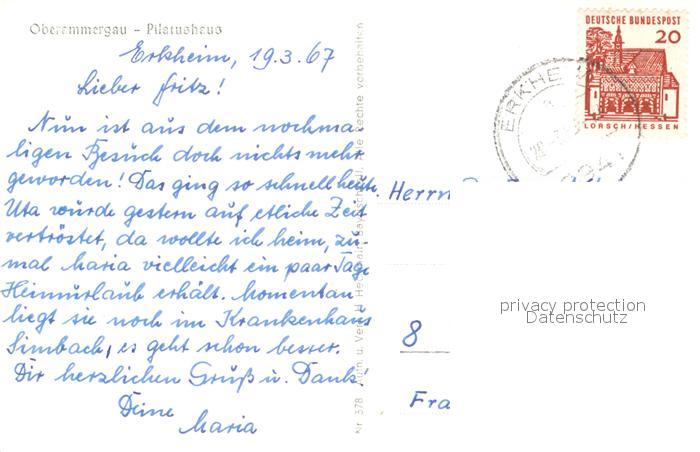 Oberammergau - Pilatushaus
Erkheim, 19.3.67
Lieber Fritz!
Nun ist aus dem nochma-
ligen Besuch doch nichts mehr
geworden! Das ging so schnell heute.
Uta wurde gestern auf etliche Zeit
vertröstet, da wollte ich heim, zu-
mal Maria vielleicht ein paar Tage
Heimurlaub erhält. Momentan
liegt sie noch im Krankenhaus
Simbach, es geht schon besser.
Dir herzlichen Gruß u. Dank!
Deine
Maria
Nr. 378 u. Verl. H Rechte vorbehalten
DEUTSCHE BUNDESPOST
20
LORSCH/HESSEN
ERKHE
Herrn
8
Fra
privacy protection
Datenschutz